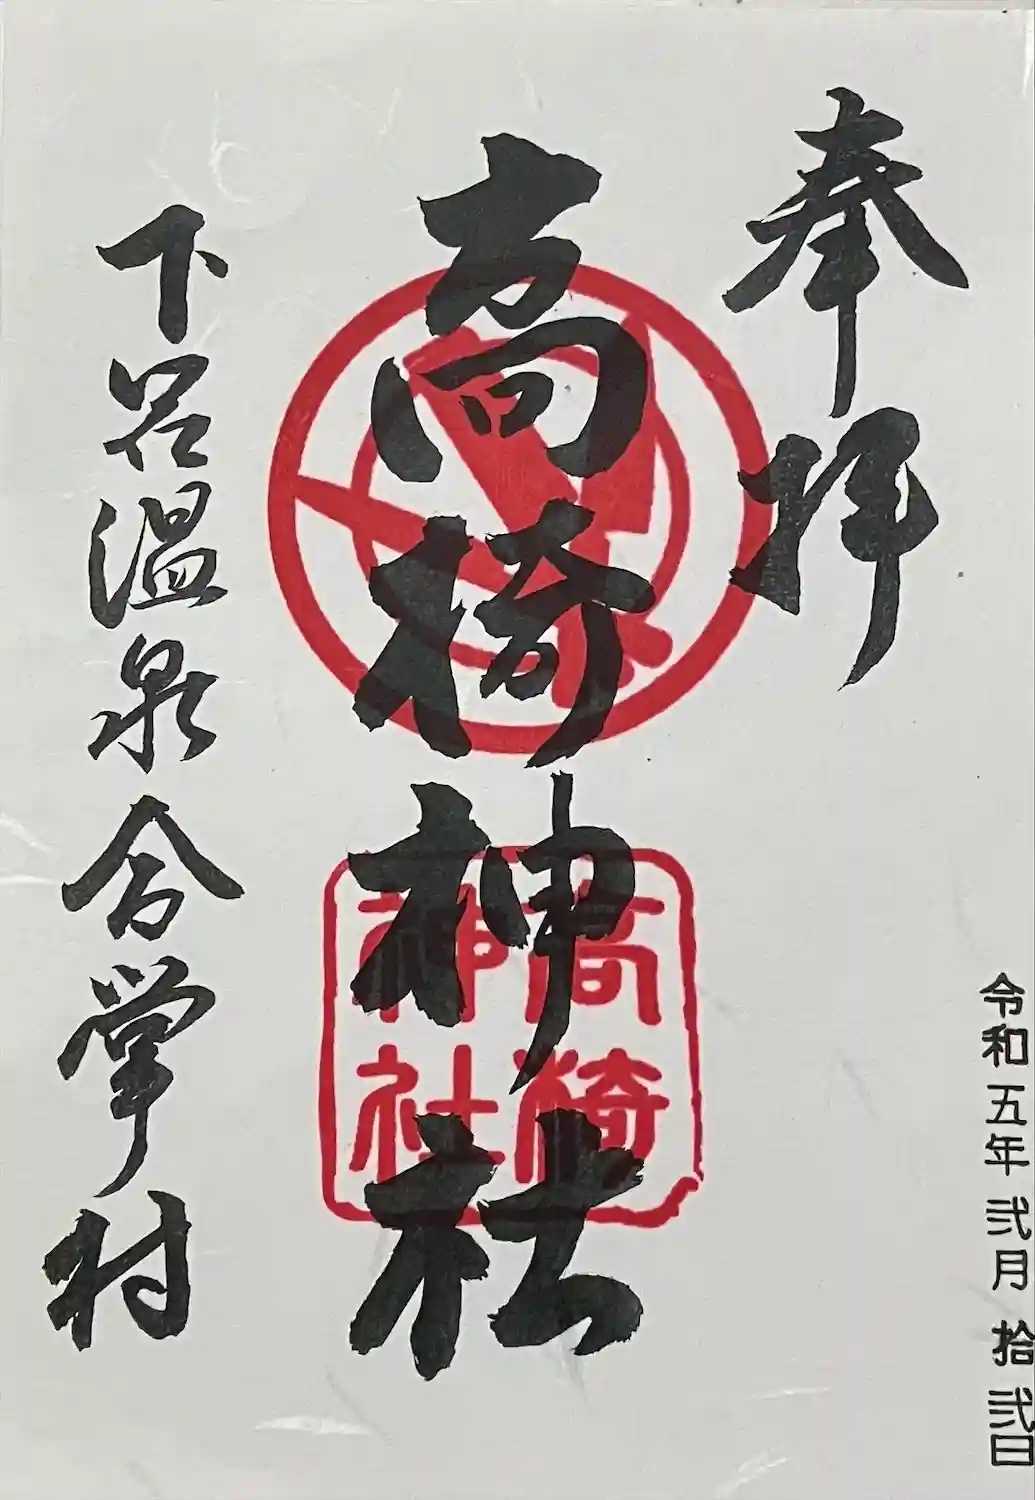 奉拝
高椅神社
下呂温泉合掌村
令和五年弐月拾弐日
高椅
神社